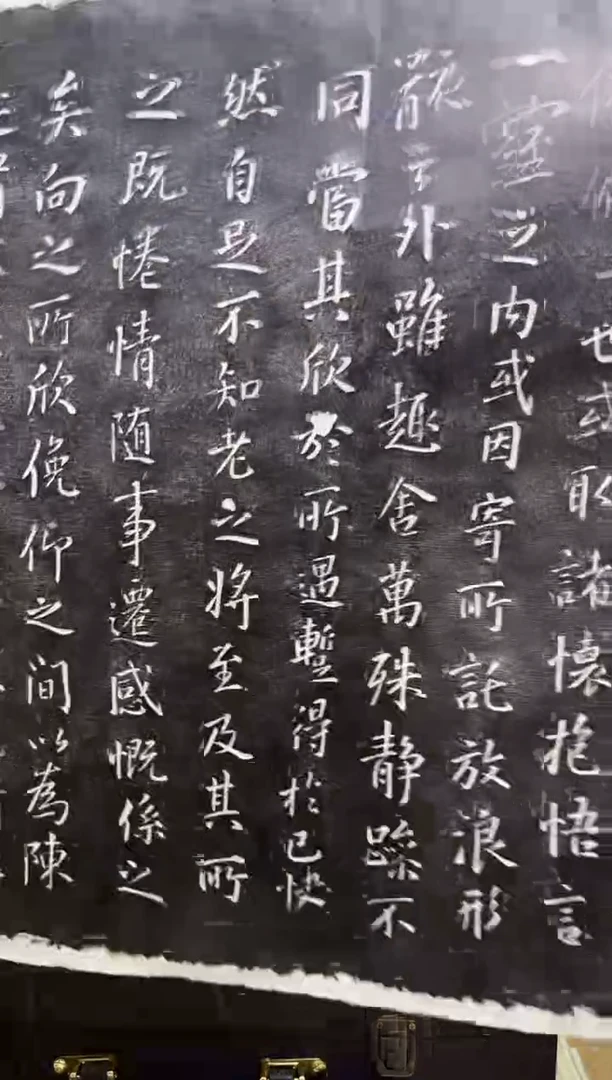 一世或取諸懷抱悟言
一室之内或因寄所託放浪形
骸之外雖趣舍萬殊静躁不
同當其欣於所遇暫得於己快
然自足不知老之將至及其所
之既惓情随事遷感慨係之
矣向之所欣俛仰之間以為陳